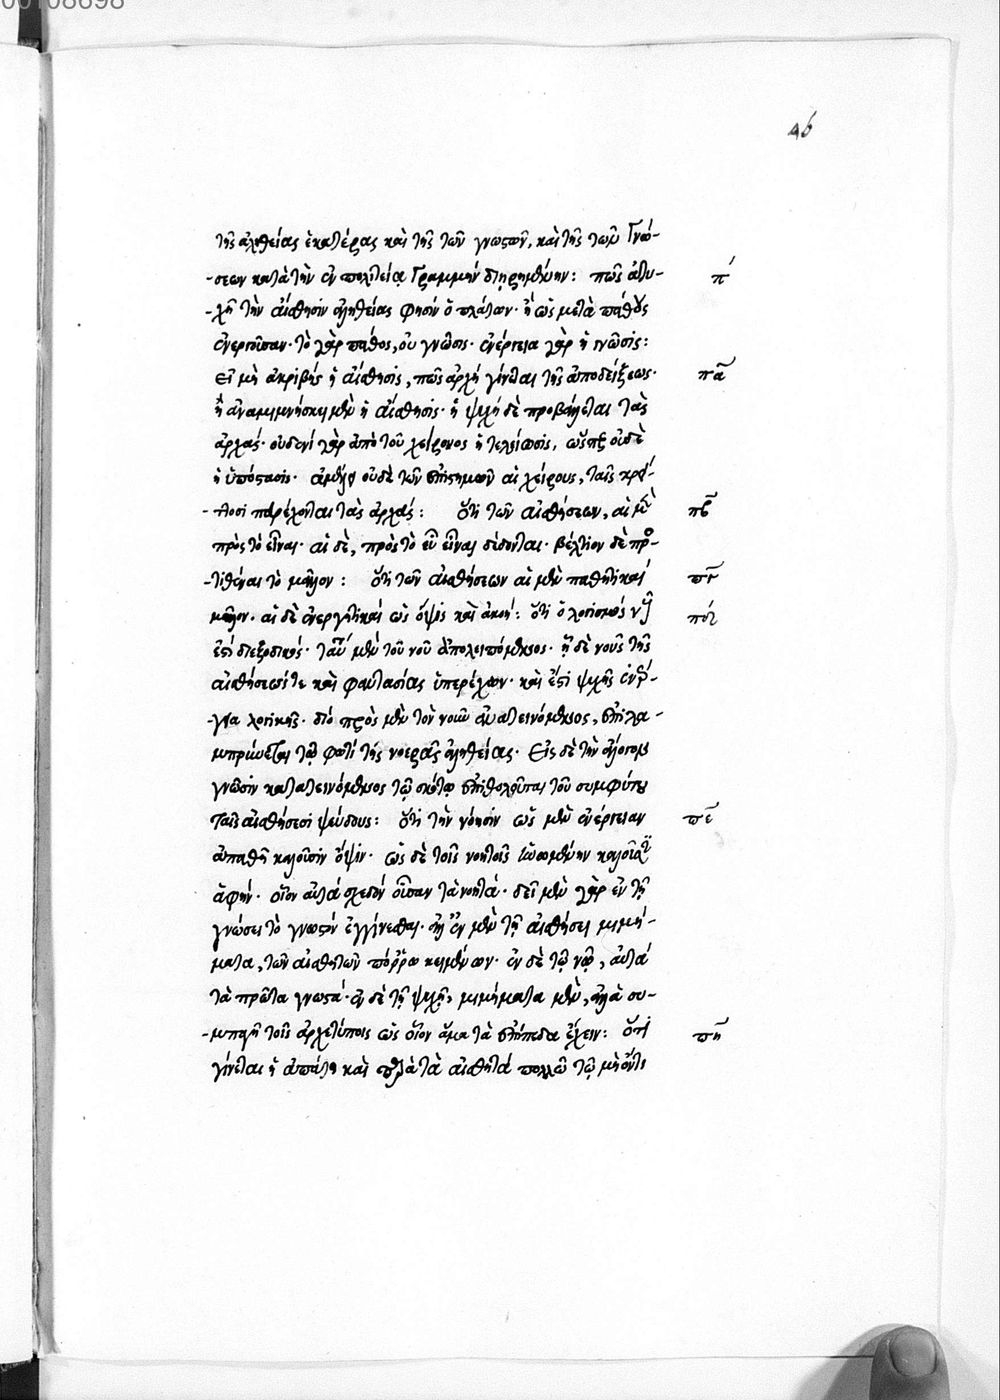 00108698
46
τῆς ἀληθείας ἑκατέρας καὶ τῆς τῶν γνωστῶν, καὶ τῆς τῶν Γνώ-
-σεων κατὰ τὴν ἐν πολιτείᾳ Γραμμὴν διῃρημένην: πῶς ἀτυ- π´
-χῆ τὴν αἴσθησιν ἀληθείας φησὶν ὁ πλάτων· ἢ ὡς μετὰ πάθους
ἐνεργοῦσαν· τὸ γὰρ πάθος, οὐ γνῶσις· ἐνέργεια γὰρ ἡ γνῶσις:
Εἰ μὴ ἀκριβὴς ἡ αἴσθησις, πῶς ἀρχὴ γίνεται τῆς ἀποδείξεως· πα
ἢ ἀναμιμνήσκει μὲν ἡ αἴσθησις· ἡ ψυχὴ δὲ προβάλλεται τὰς
ἀρχάς· οὐδενὶ γὰρ ἀπὸ τοῦ χείρονος ἡ τελείωσις, ὥσπερ οὐδὲ
ἡ ὑπόστασις· ἀμέλει οὐδὲ τῶν ἐπιστημῶν αἱ χείρους, ταῖς κρεί-
-ττοσι παρέχονται τὰς ἀρχάς: ὅτι τῶν αἰσθήσεων, αἱ μὲν πβ
πρὸς τὸ εἶναι· αἱ δὲ, πρὸς τὸ εὖ εἶναι δέδονται· βέλτιον δὲ προ-
-τιθέναι τὸ μᾶλλον: ὅτι τῶν αἰσθήσεων αἱ μὲν παθητικαὶ πγ
μᾶλλον· αἱ δὲ ἐνεργητικαὶ ὡς ὄψις καὶ ἀκοή: ὅτι ὁ λογισμὸς νοῦς πδ
ἐστὶ διεξοδικός· ταύτῃ μὲν τοῦ νοῦ ἀπολειπόμενος· ᾗ δὲ νοῦς τῆς
αἰσθήσεώς τε καὶ φαντασίας ὑπερέχων· καὶ ἔστι ψυχῆς ἐνέρ-
-γεια λογικῆς· διὸ πρὸς μὲν τὸν νοῦν ἀνατεινόμενος, ἐπιλα-
μπρύνεται τῷ φωτὶ τῆς νοερᾶς ἀληθείας· Εἰς δὲ τὴν ἄλογον
γνῶσιν κατατεινόμενος τῷ σκότῳ ἐπιθολοῦται τοῦ συμφύτου
ταῖς αἰσθήσεσι ψεύδους: ὅτι τὴν νόησιν ὡς μὲν ἐνέργειαν πε
ἀπαθῆ καλοῦσιν ὄψιν· ὡς δὲ τοῖς νοητοῖς ἑνουμένην καλοῦσιν
ἁφήν· οἷον αὐτὰ σχεδὸν οὖσαν τὰ νοητά· δεῖ μὲν γὰρ ἐν τῇ
γνώσει τὸ γνωστὸν ἐγγίνεσθαι· ἀλλ' ἐν μὲν τῇ αἰσθήσει μιμή-
ματα, τῶν αἰσθητῶν πόρρω κειμένων· ἐν δὲ τῷ νῷ, αὐτὰ
τὰ πρῶτα γνωστά· ἐν δὲ τῇ ψυχῇ, μιμήματα μὲν, ἀλλὰ συ-
-μπαγῆ τοῖς ἀρχετύποις ὡς οἷον ἅμα τὰ ἐπίπεδα ἔχειν: ὅτι πη
γίνεται ἡ ἀπάτη καὶ τὰ αἰσθητὰ πολλῷ τῷ μὴ ὄντι